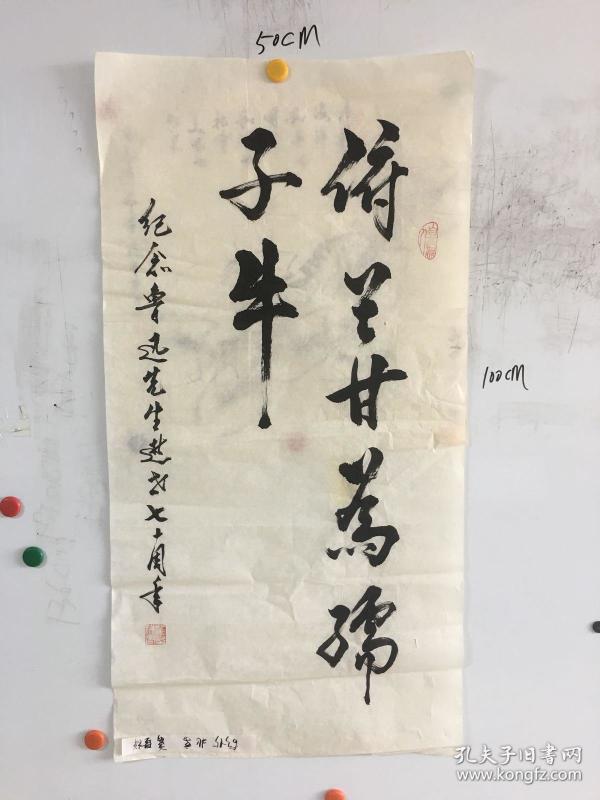 50CM
俯首甘為孺
子牛
纪念鲁迅先生逝世七十周年
100CM
孔夫子旧书网
www.kongfz.com